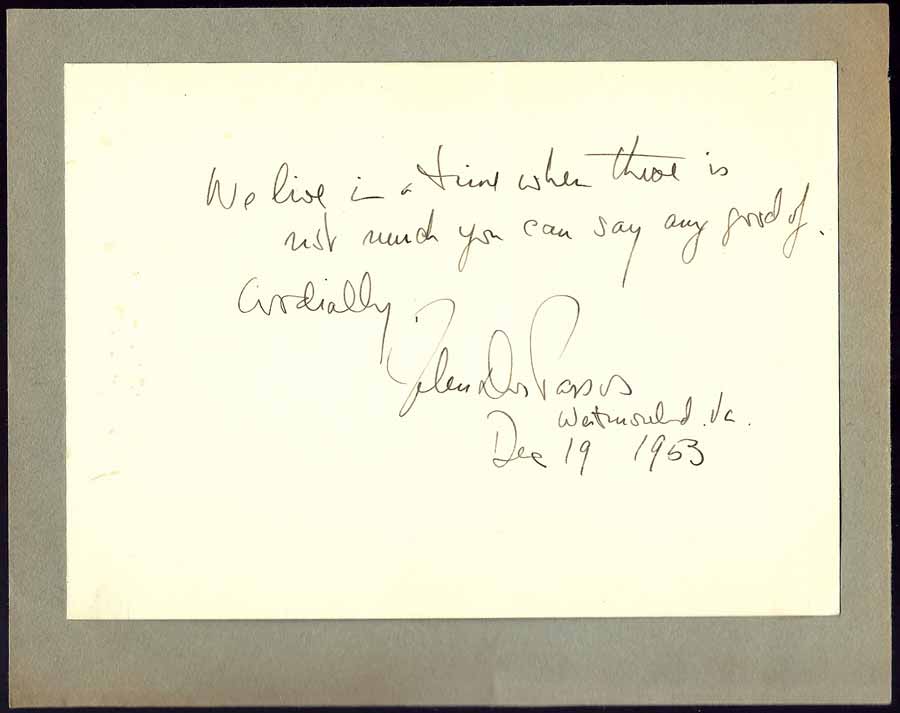 We live in a time when there is
not much you can say any good of.
Cordially,
John Dos Passos
Westmoreland. Va.
Dec 19 1953